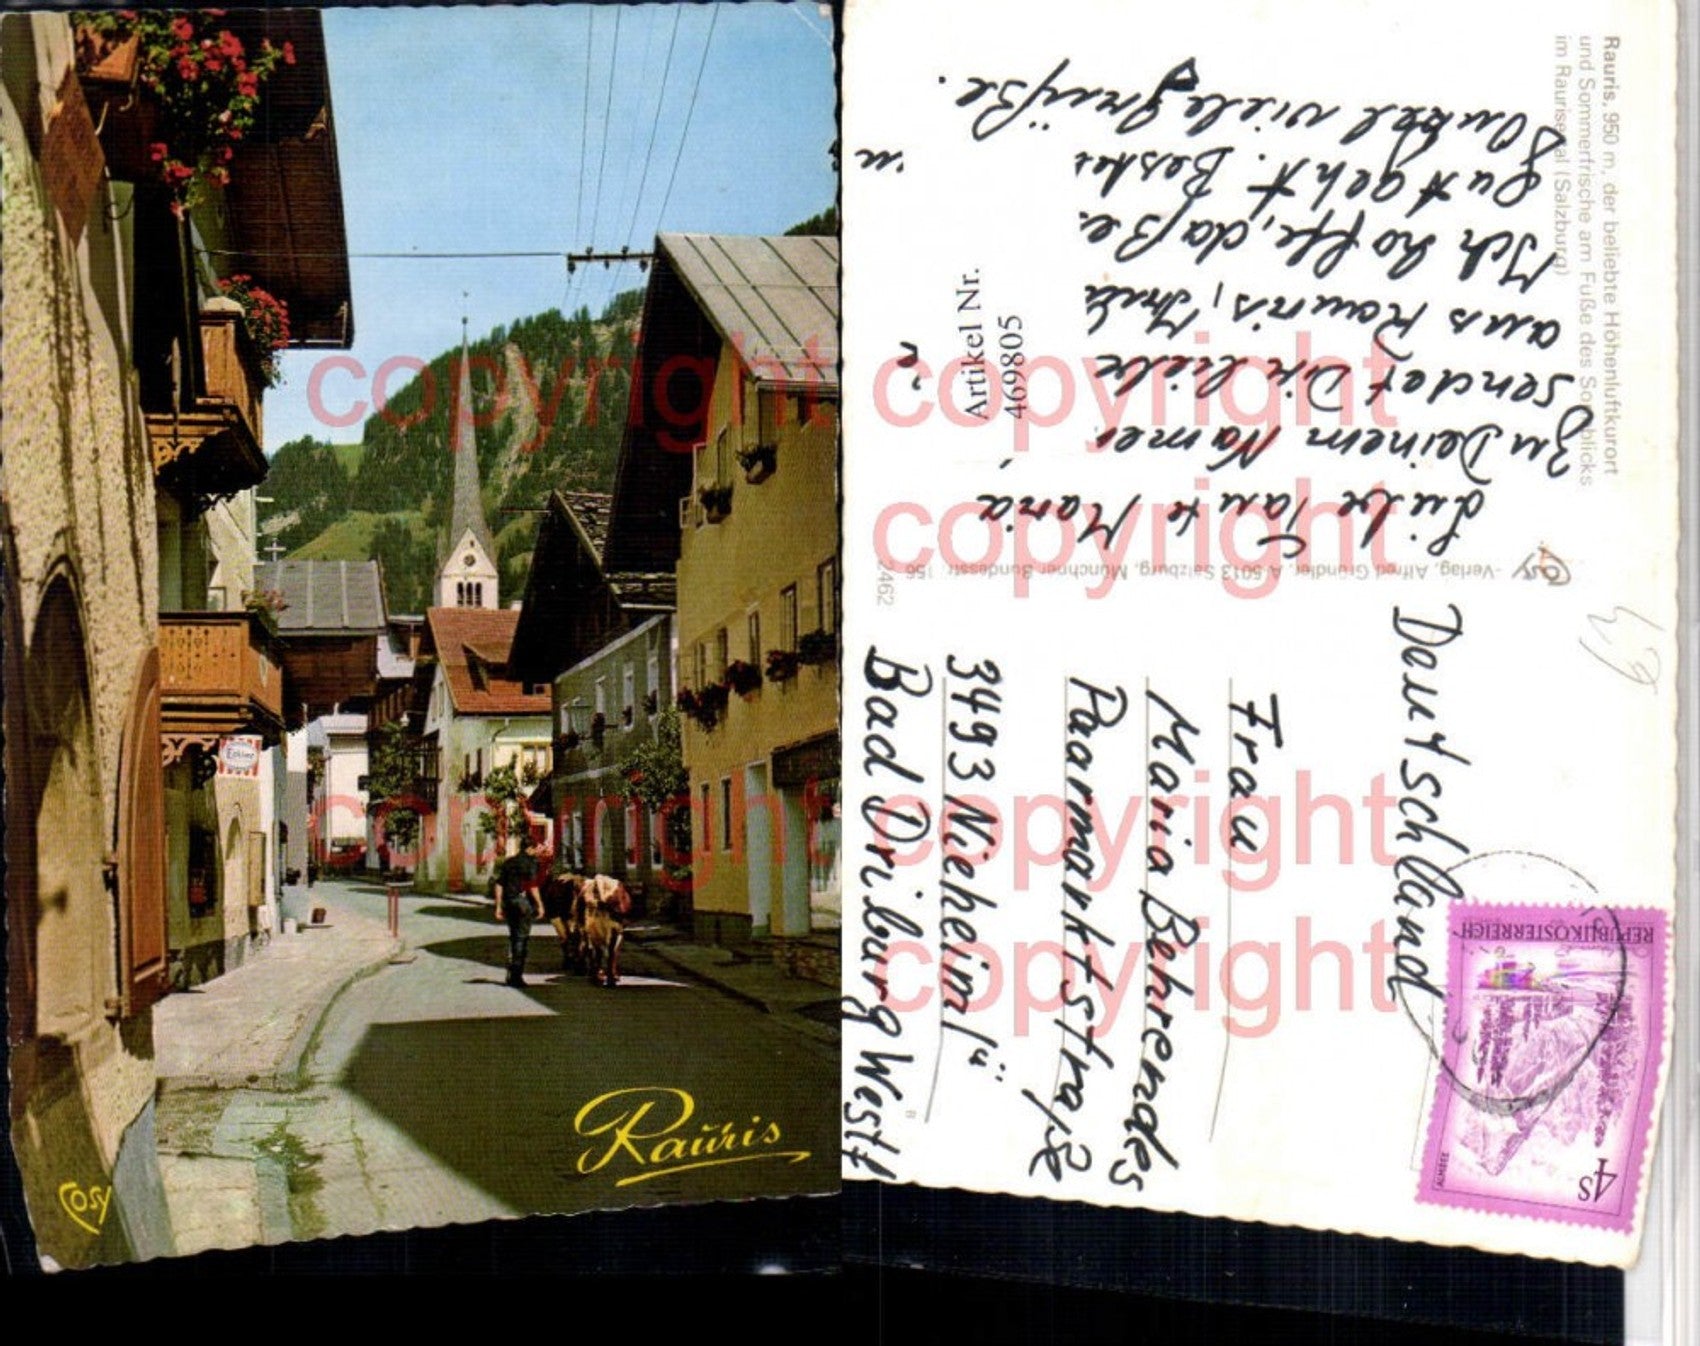 Eskimo
Rauris
cosy
copyright
copyright
copyright
copyright
copyright
copyright
Rauris, 950 m, der beliebte Höhenluftkurort
und Sommerfrische am Fuße des Sonnblicks
im Raurisertal (Salzburg)
Liebe Tante Maria
Zu Deinem Name
sendet Dir liebe
aus Rauris,
Ich hoffe, daß e.
gut geht. Beste
Onkel viele Grüße.
Artikel Nr.
469805
-Verlag, Alfred Gründler, A-5013 Salzburg, Münchner Bundesstr. 156
2462
Frau
Maria Behrendes
Paarmarktstraße
3493 Nieheim
Bad Driburg Westf
Deutschland
REPUBLIK ÖSTERREICH
4S
ALMSEE